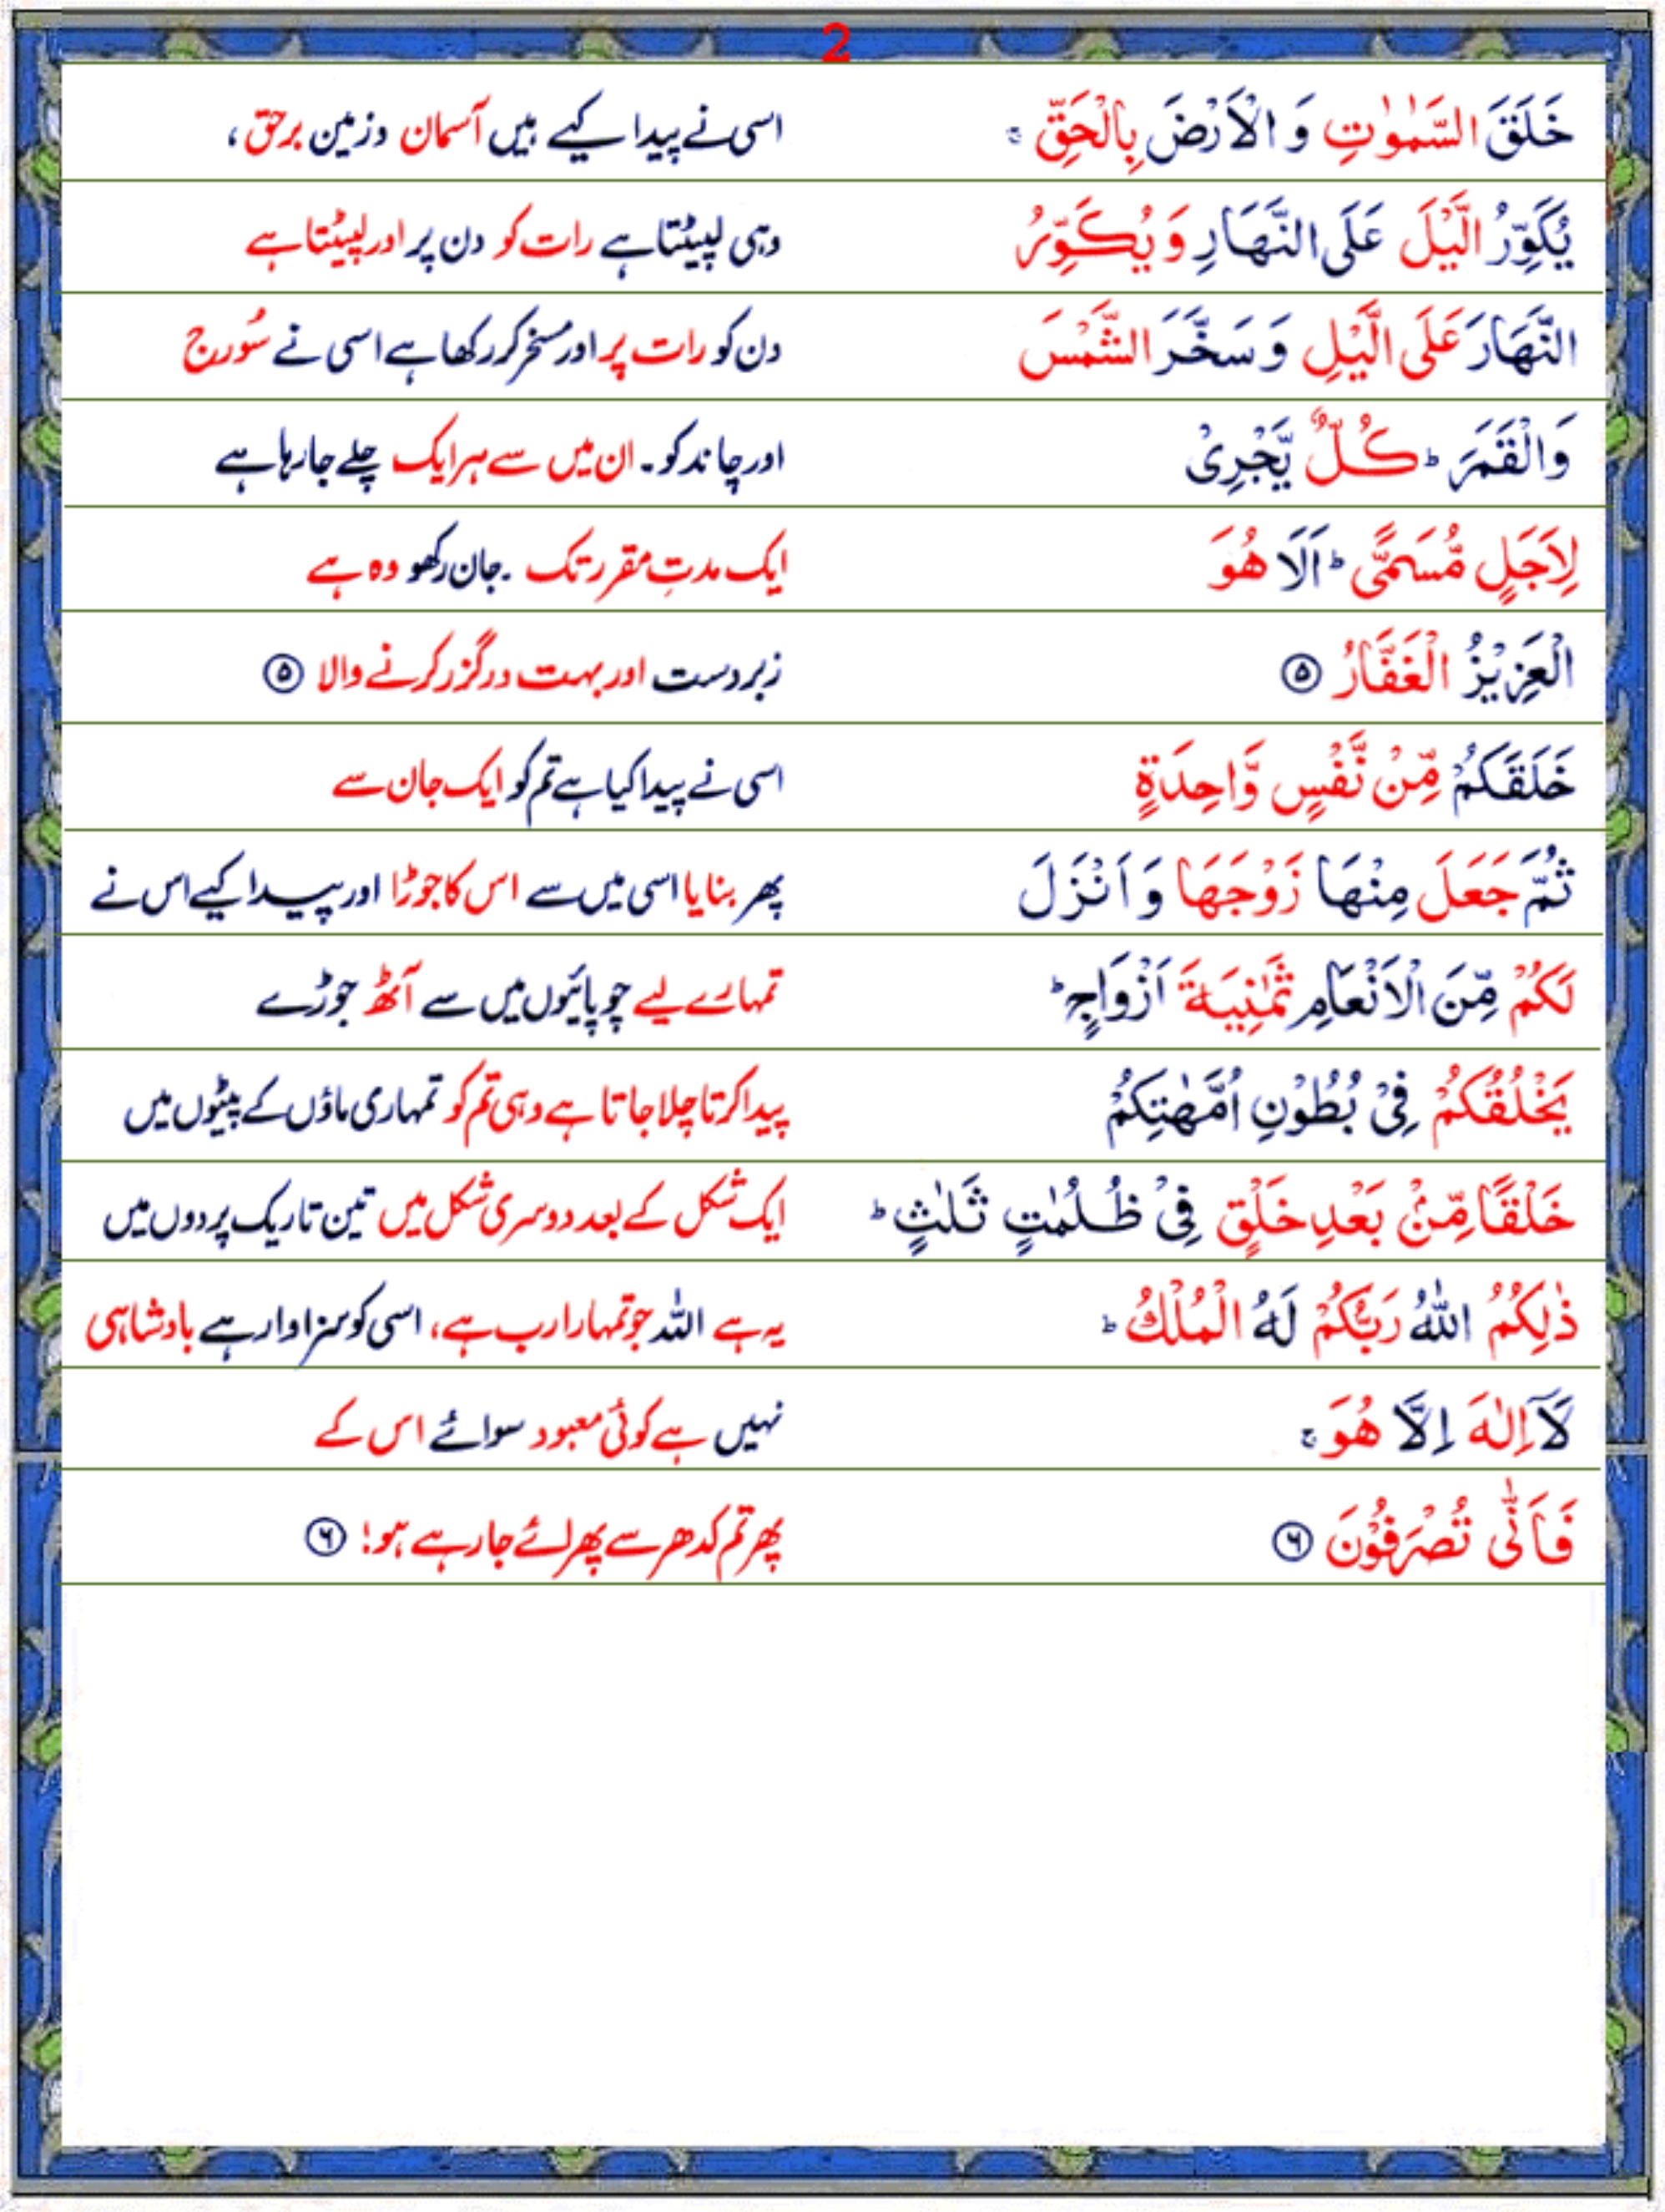 2
خَلَقَ السَّمٰوٰتِ وَ الْاَرْضَ بِالْحَقِّ ۚ اسی نے پیدا کیے ہیں آسمان و زمین برحق،
يُكَوِّرُ الَّيْلَ عَلَى النَّهَارِ وَ يُكَوِّرُ وہی لپیٹتا ہے رات کو دن پر اور لپیٹتا ہے
النَّهَارَ عَلَى الَّيْلِ وَ سَخَّرَ الشَّمْسَ دن کو رات پر اور مسخر کر رکھا ہے اسی نے سُورج
وَالْقَمَرَ ؕ كُلٌّ يَّجْرِىْ اور چاند کو۔ ان میں سے ہر ایک چلے جا رہا ہے
لِاَجَلٍ مُّسَمًّى ؕ اَلَا هُوَ ایک مدتِ مقرر تک ۔ جان رکھو وہ ہے
الْعَزِيْزُ الْغَفَّارُ ۵ زبردست اور بہت درگزر کرنے والا ۵
خَلَقَكُمْ مِّنْ نَّفْسٍ وَّاحِدَةٍ اسی نے پیدا کیا ہے تم کو ایک جان سے
ثُمَّ جَعَلَ مِنْهَا زَوْجَهَا وَ اَنْزَلَ پھر بنایا اسی میں سے اس کا جوڑا اور پیدا کیے اس نے
لَكُمْ مِّنَ الْاَنْعَامِ ثَمٰنِيَةَ اَزْوَاجٍ ؕ تمہارے لیے چوپائیوں میں سے آٹھ جوڑے
يَخْلُقُكُمْ فِىْ بُطُوْنِ اُمَّهٰتِكُمْ پیدا کرتا چلا جاتا ہے وہی تم کو تمہاری ماؤں کے پیٹوں میں
خَلْقًا مِّنْۢ بَعْدِ خَلْقٍ فِىْ ظُلُمٰتٍ ثَلٰثٍ ؕ ایک شکل کے بعد دوسری شکل میں تین تاریک پردوں میں
ذٰلِكُمُ اللّٰهُ رَبُّكُمْ لَهُ الْمُلْكُ ؕ یہ ہے اللہ جو تمہارا رب ہے، اسی کو سزاوار ہے بادشاہی
لَاۤ اِلٰهَ اِلَّا هُوَ ۚ نہیں ہے کوئی معبود سوائے اس کے
فَاَنّٰى تُصْرَفُوْنَ ۶ پھر تم کدھر سے پھرائے جا رہے ہو! ۶